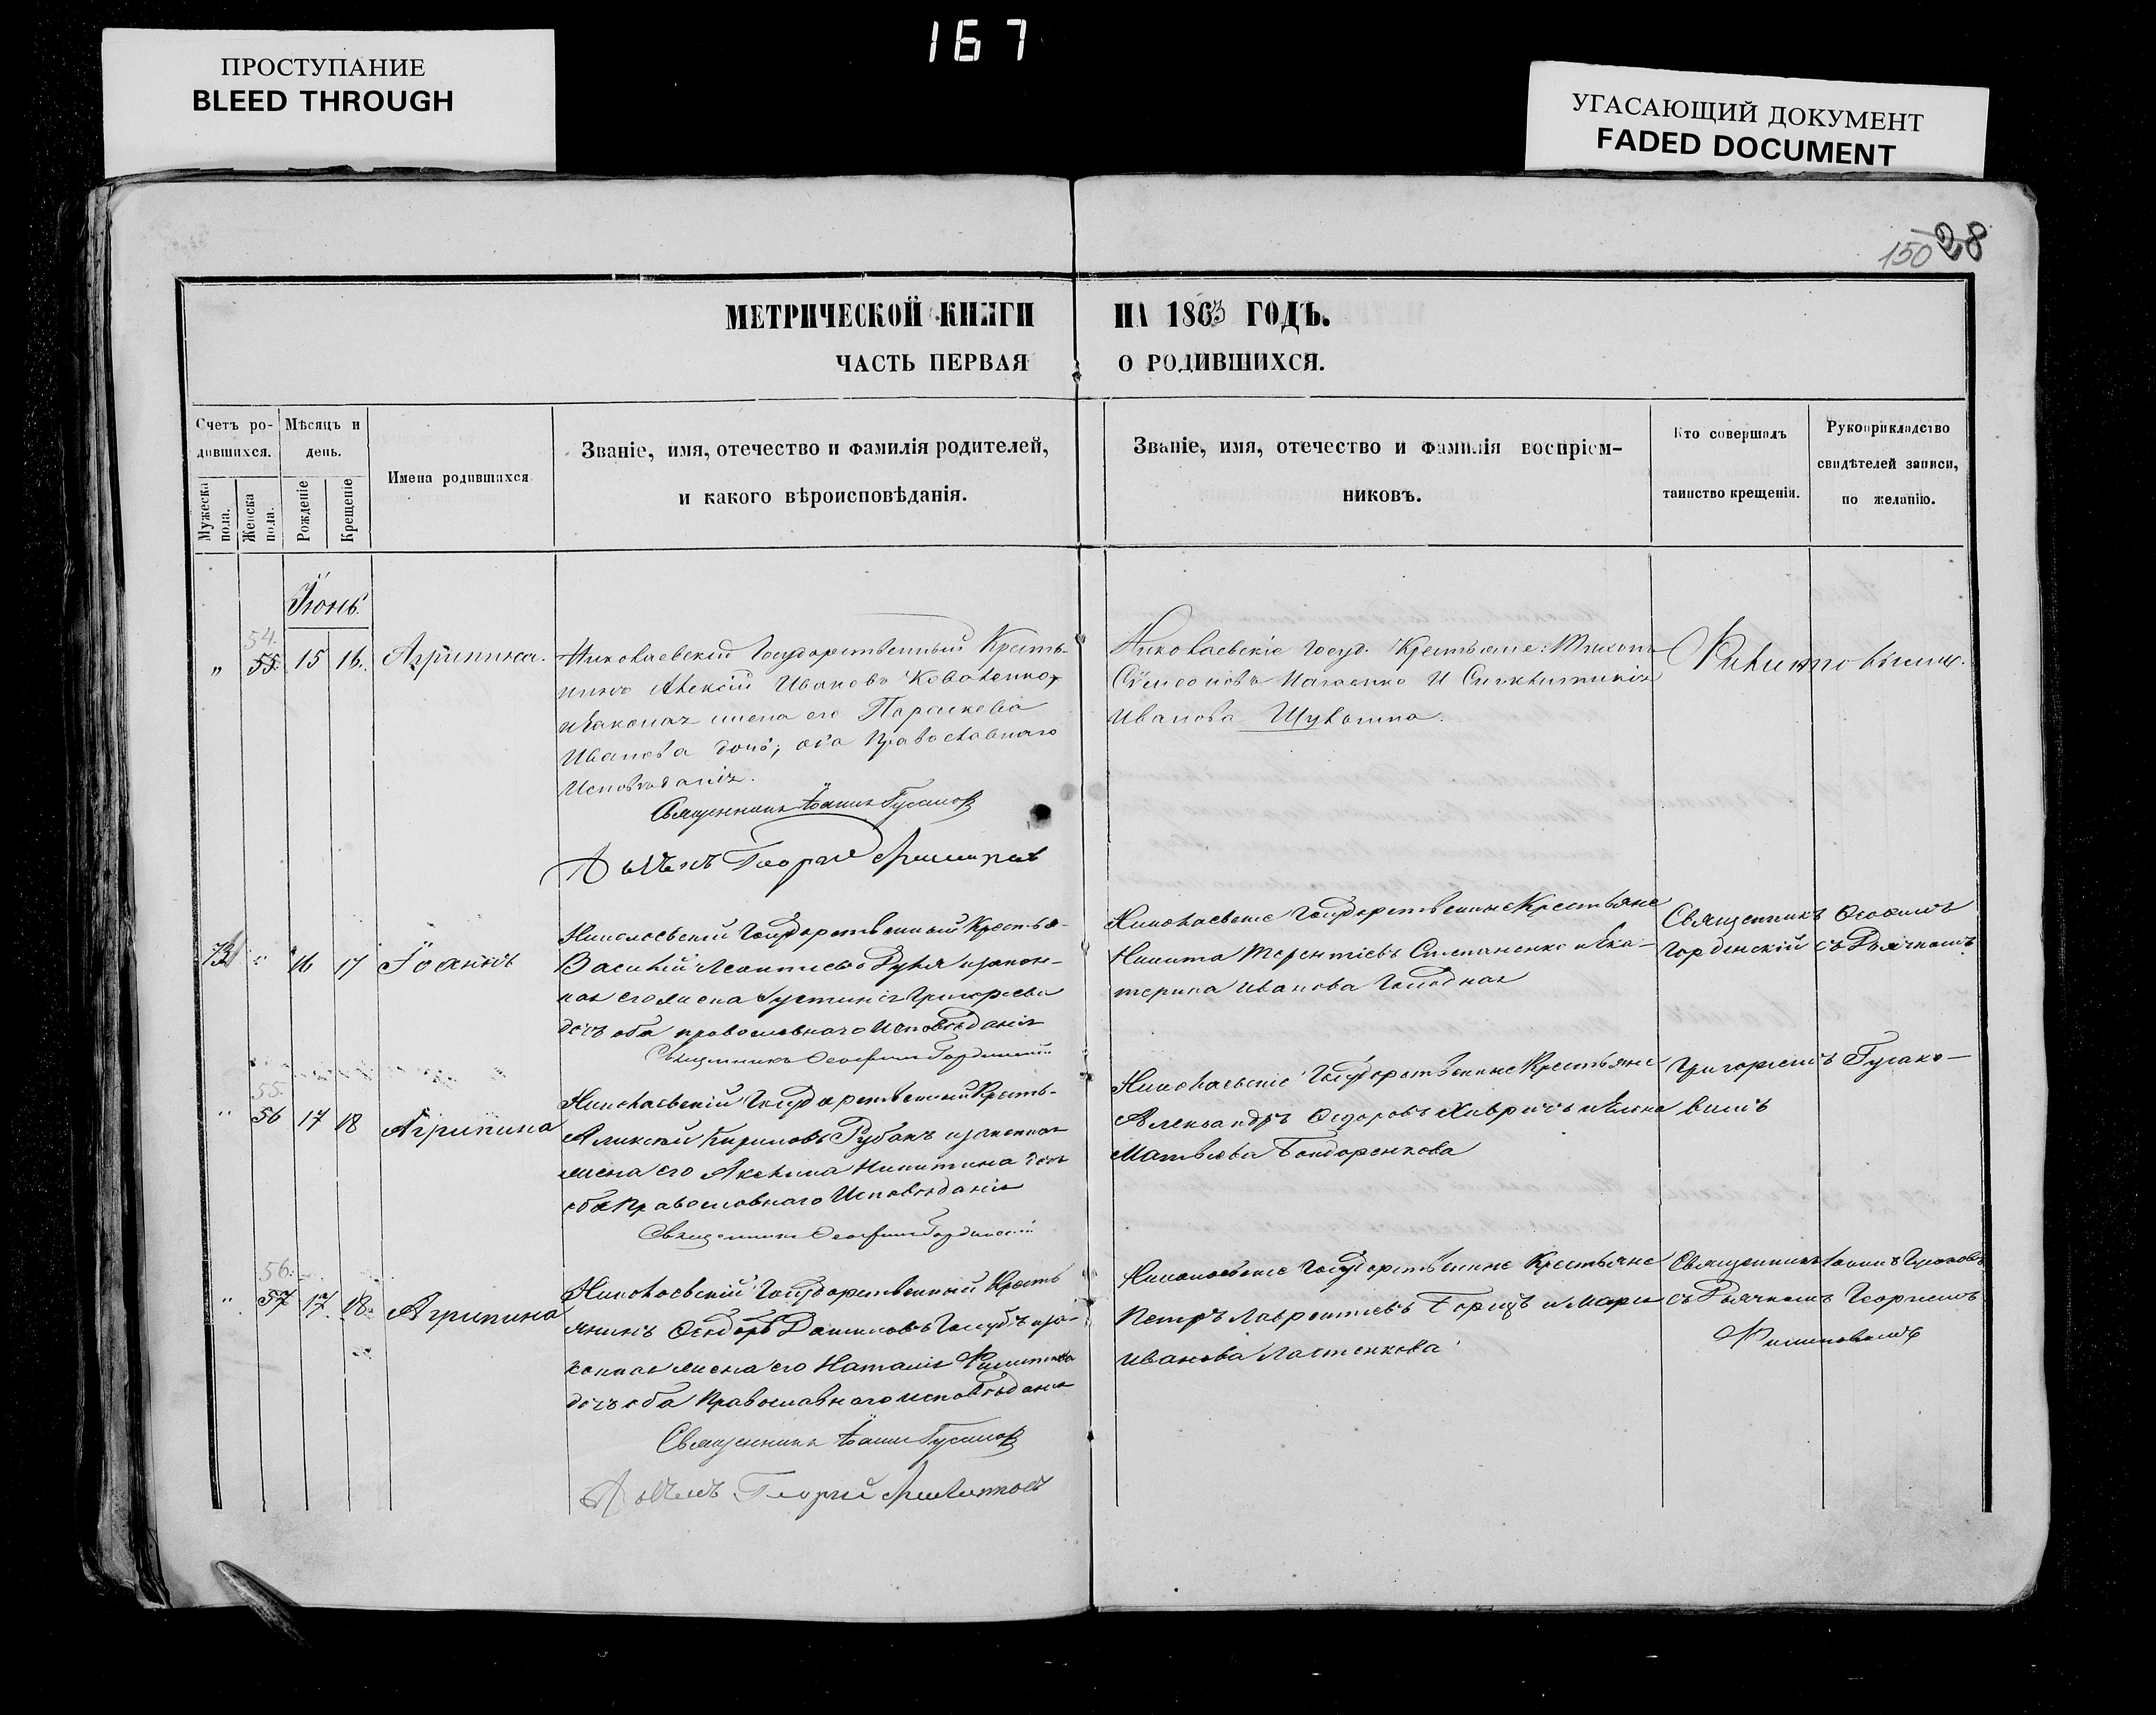 167
ПРОСТУПАНИЕ
BLEED THROUGH
УГАСАЮЩИЙ ДОКУМЕНТ
FADED DOCUMENT
150 28
МЕТРИЧЕСКОЙ КНИГИ НА 1863 ГОДЪ.
ЧАСТЬ ПЕРВАЯ О РОДИВШИХСЯ.
Счетъ ро-
дившихся.
Мужеска пола.
Женска пола.
Мѣсяцъ и
день.
Рожденіе
Крещеніе
Имена родившихся
Званіе, имя, отечество и фамилія родителей,
и какого вѣроисповѣданія.
Званіе, имя, отечество и фамилія воспріем-
никовъ.
Кто совершалъ
таинство крещенія.
Рукоприкладство
свидѣтелей записи,
по желанію.
Іюнь
54.
" 55. 15 16. Агрипина.
Николаевскій Государственный Кресть-
янинъ Алексій Ивановъ Коваленко,
и законая жена его Параскева
Иванова дочь, оба Православнаго
Исповѣданія.
Священникъ Іоаннъ Гусаковъ
Дьячекъ Георгій
Николаевскіе Госуд. Крестьяне: Тихонъ
Сѵмеоновъ и
Иванова
73 " 16 17 Іоаннъ
Николаевскій Государственный Крестья-
Василій Леонтіевъ и закон-
ная его жена Іустинія Григорьева
дочь оба православнаго Исповѣданія
Священникъ Ѳеофилъ Горденскій
Николаевскіе Государственные Крестьяне
Никита Терентіевъ Степаненко и Ека-
терина Иванова Голодная
Священникъ Ѳеофилъ
Горденскій съ Дьячкомъ
55.
" 56 17 18 Агрипина
Николаевскій Государственный Кресть-
Алексій Кириловъ Рубанъ и законная
жена его Акелина Никитина дочь
оба Православнаго Исповѣданія
Священникъ Ѳеофилъ Горденскій
Николаевскіе Государственные Крестьяне
Александръ Ѳедоровъ и Елена
Матвѣева Бондаренкова
Григоріемъ Гусако-
вымъ
56.
" 57 17. 18. Агрипина
Николаевскій Государственный Кресть
янинъ Ѳеодоръ Даниловъ Голубъ и за-
конная жена его Наталія
дочь оба Православнаго исповѣданія
Священникъ Іоаннъ Гусаковъ
Дьячекъ Георгій
Николаевскіе Государственные Крестьяне
Петръ Лаврентіевъ и Марія
Иванова
Священникъ Іоаннъ Гусаковъ
съ Дьячкомъ Георгіемъ